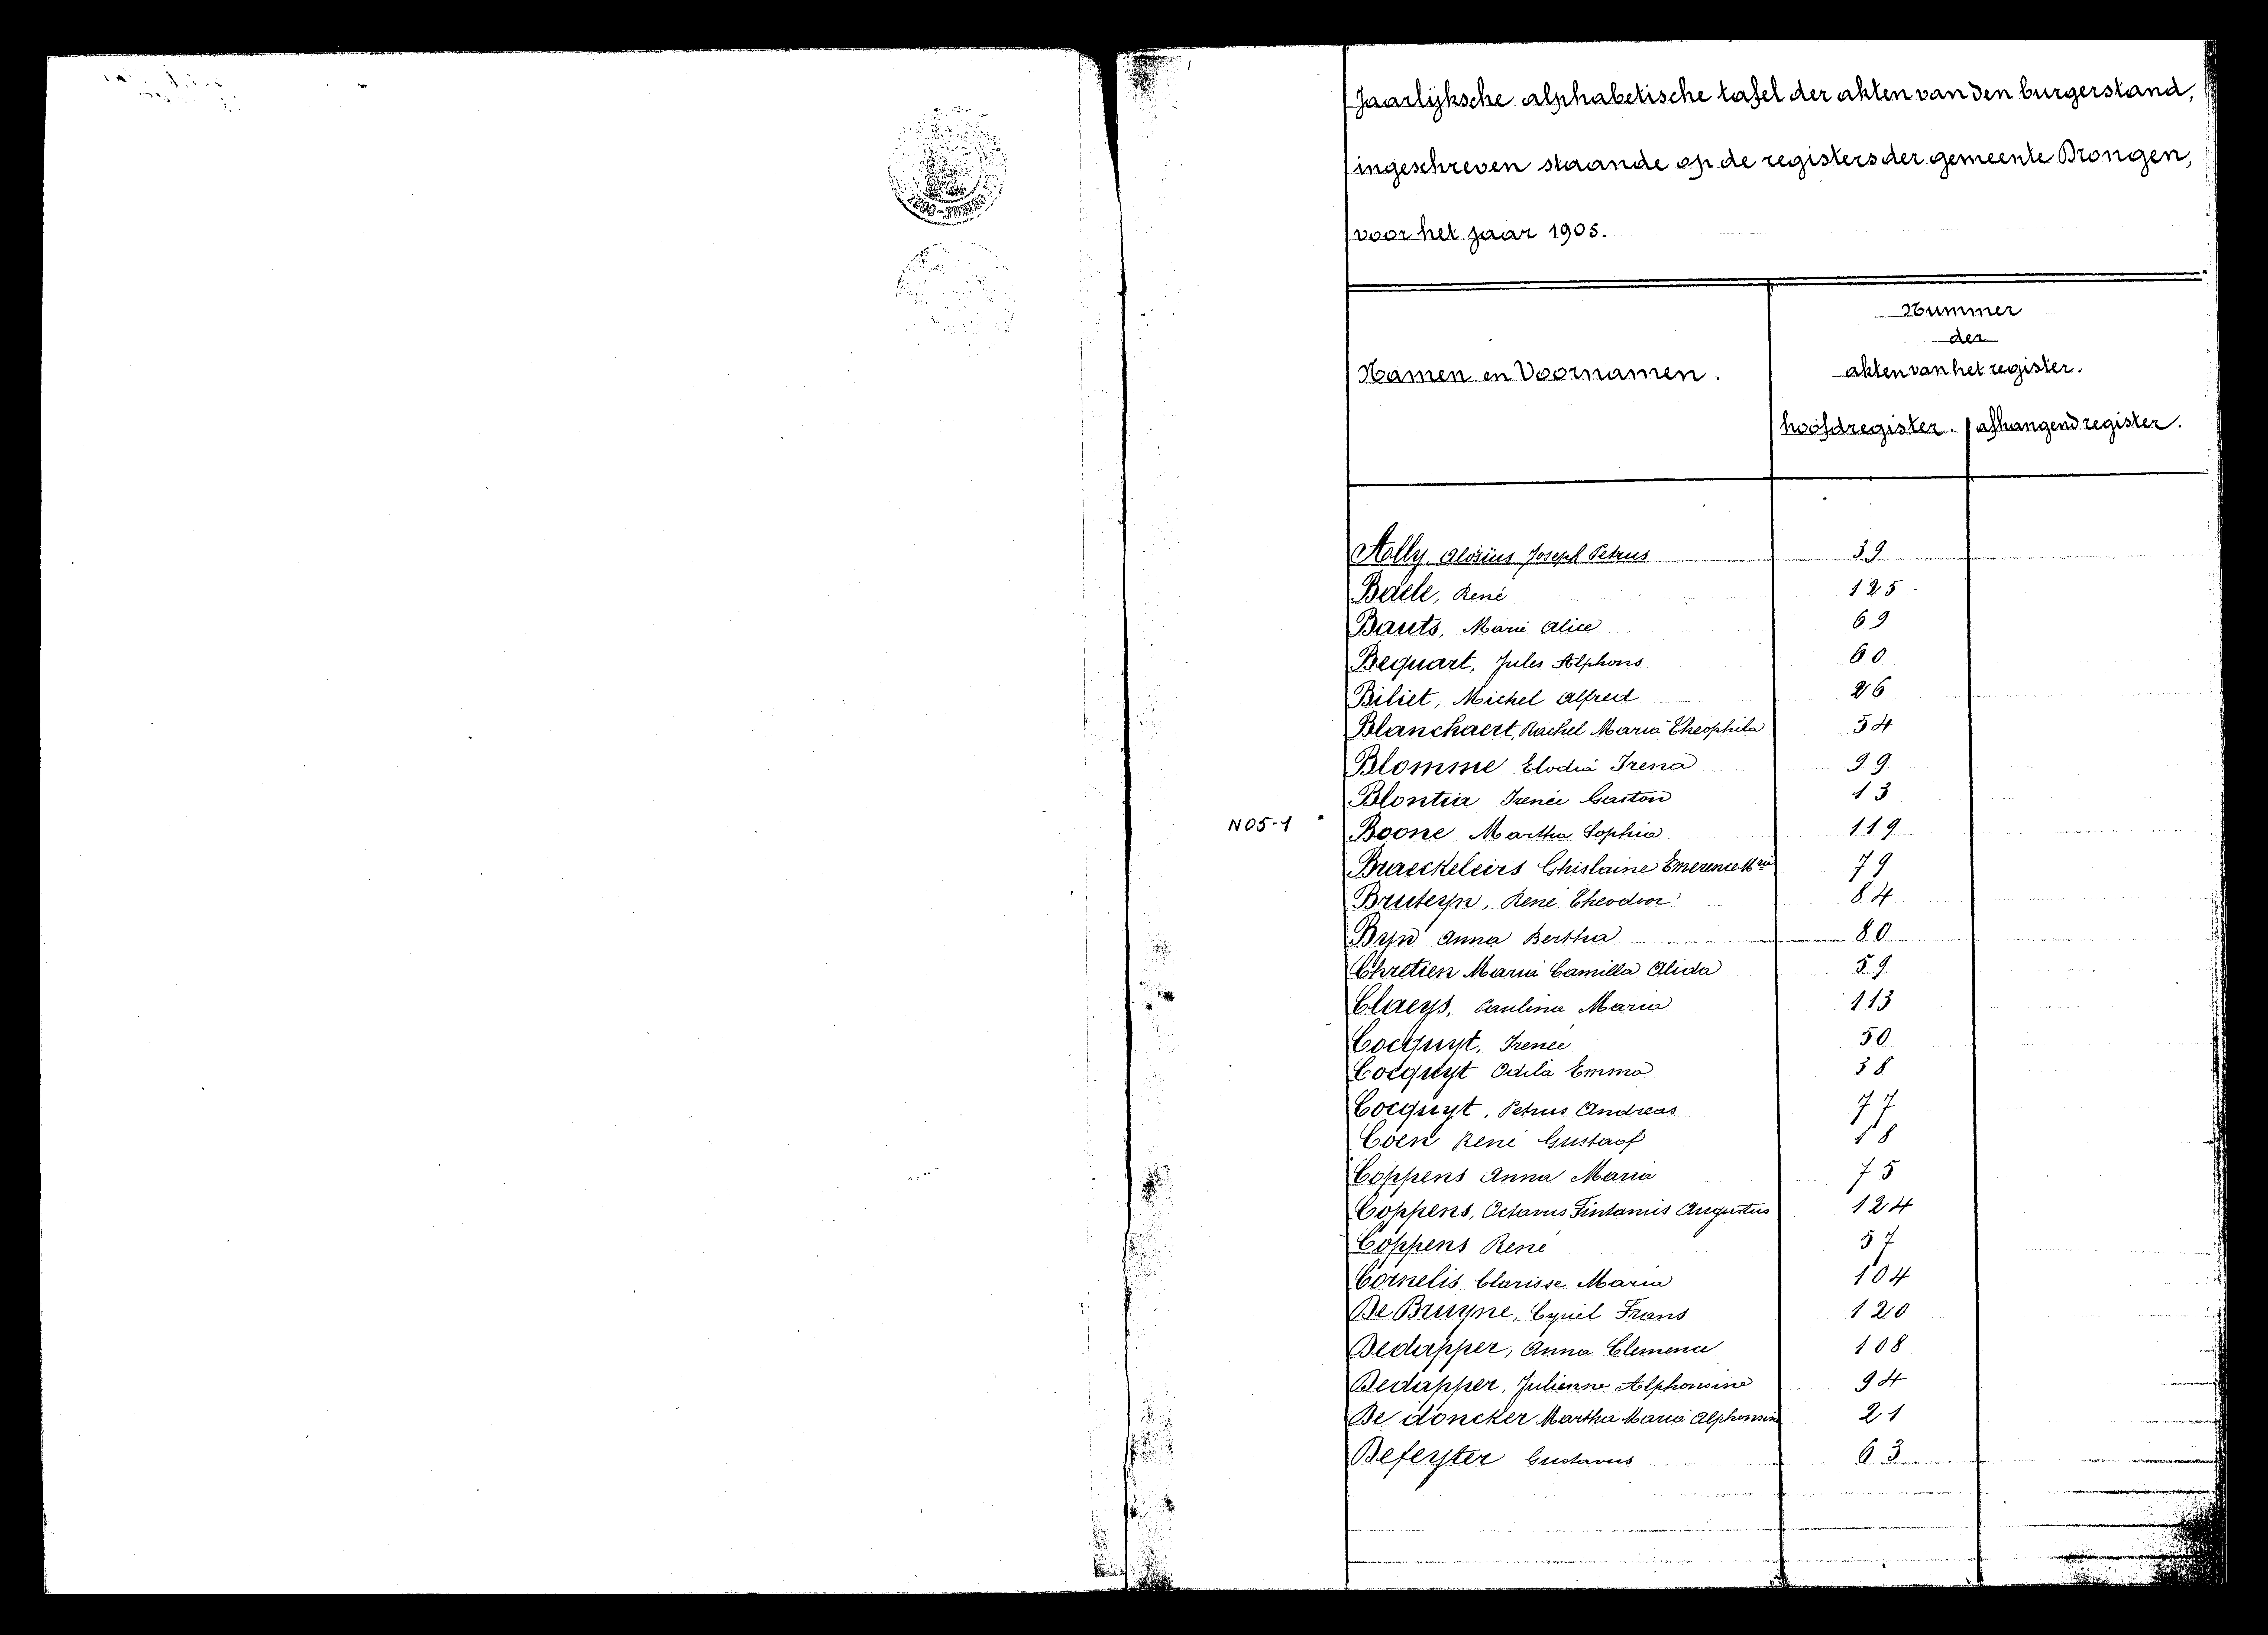 Jaarlijksche alphabetische tafel der akten van den burgerstand,
ingeschreven staande op de registers der gemeente Drongen,
voor het jaar 1905.
Nummer
der
akten van het register.
Namen en Voornamen.
hoofdregister. afhangend register.
Aolly Aloïsius Joseph Petrus 39
Baele, René 125
Bauts, Marie Alice 69
Bequart, Jules Alphons 60
Biliet, Michel Alfred 26
Blanchaert, Rachel Maria Theophila 54
Blomme Elodia Irena 99
Blontia Irenée Gaston 13
N05-1
Boone Martha Sophia 119
Braeckeleirs Ghislaine Emerence Mie 79
Bruteyn, René Theodoor 84
Byn Anna Bertha 80
Chretien Maria Camilla Alida 59
Claeys, Paulina Maria 113
Cocquyt, Irenee 50
Cocquyt Odila Emma 38
Cocquyt, Petrus Andreas 77
Coen René Gustaaf 18
Coppens Anna Maria 75
Coppens, Octavus Augustus 124
Coppens René 57
Cornelis Clarisse Maria 104
De Bruyne, Cyriel Frans 120
Dedapper, Anna Clemence 108
Dedapper, Julienne Alphonsine 94
De doncker Martha Maria Alphonsine 21
Defeyter Gustavus 63